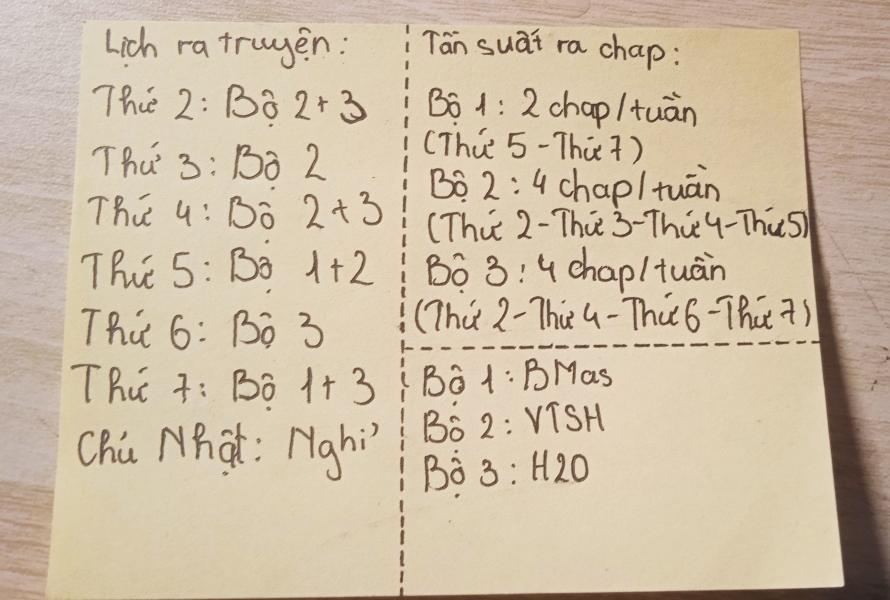 Lịch ra truyện:
Thứ 2: Bộ 2+3
Thứ 3: Bộ 2
Thứ 4: Bộ 2+3
Thứ 5: Bộ 1+2
Thứ 6: Bộ 3
Thứ 7: Bộ 1+3
Chủ Nhật: Nghỉ
Tần suất ra chap:
Bộ 1: 2 chap/tuần
(Thứ 5-Thứ 7)
Bộ 2: 4 chap/tuần
(Thứ 2-Thứ 3-Thứ 4-Thứ 5)
Bộ 3: 4 chap/tuần
(Thứ 2-Thứ 4-Thứ 6-Thứ 7)
Bộ 1: BMas
Bộ 2: VTSH
Bộ 3: H2O